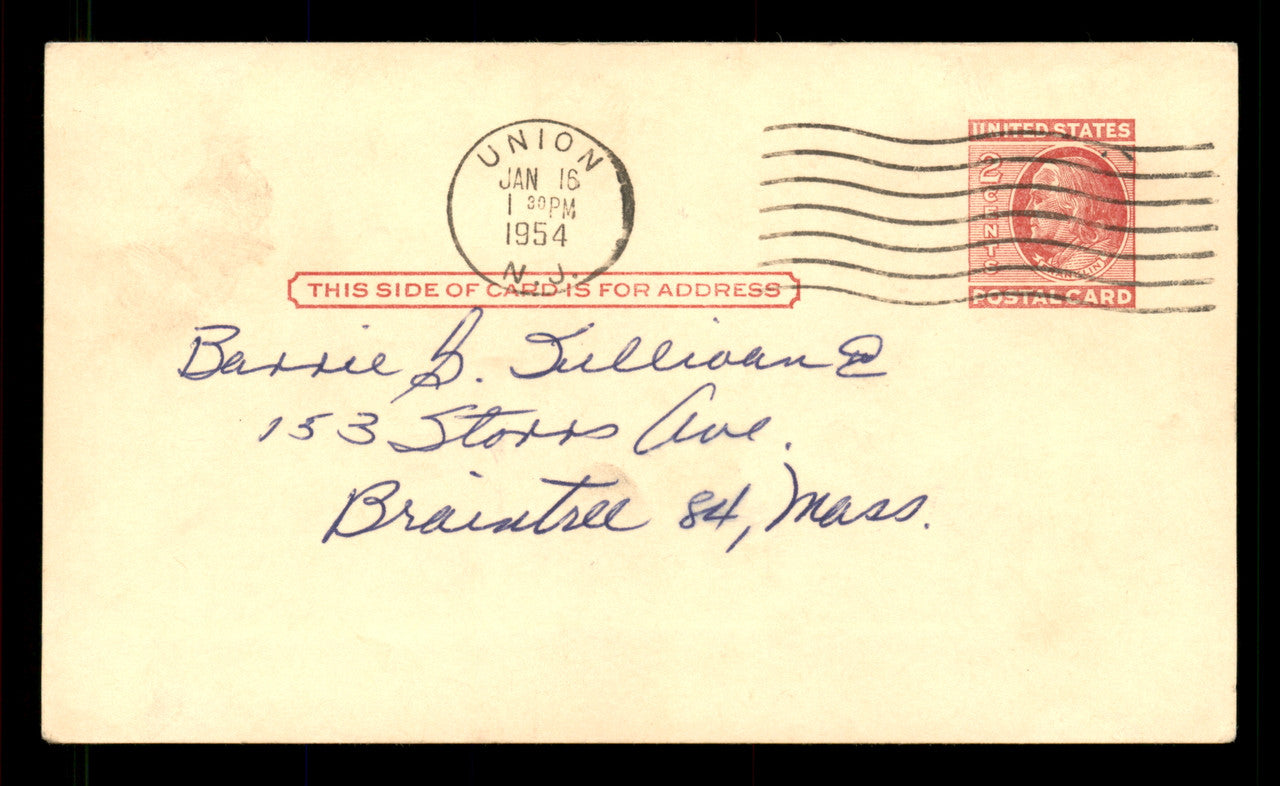 UNION
JAN 16
1 30 PM
1954
N.J.
UNITED STATES
2 CENTS
FRANKLIN
POSTAL CARD
THIS SIDE OF CARD IS FOR ADDRESS
Barrie B. Sullivan
153 Storrs Ave.
Braintree 84, Mass.